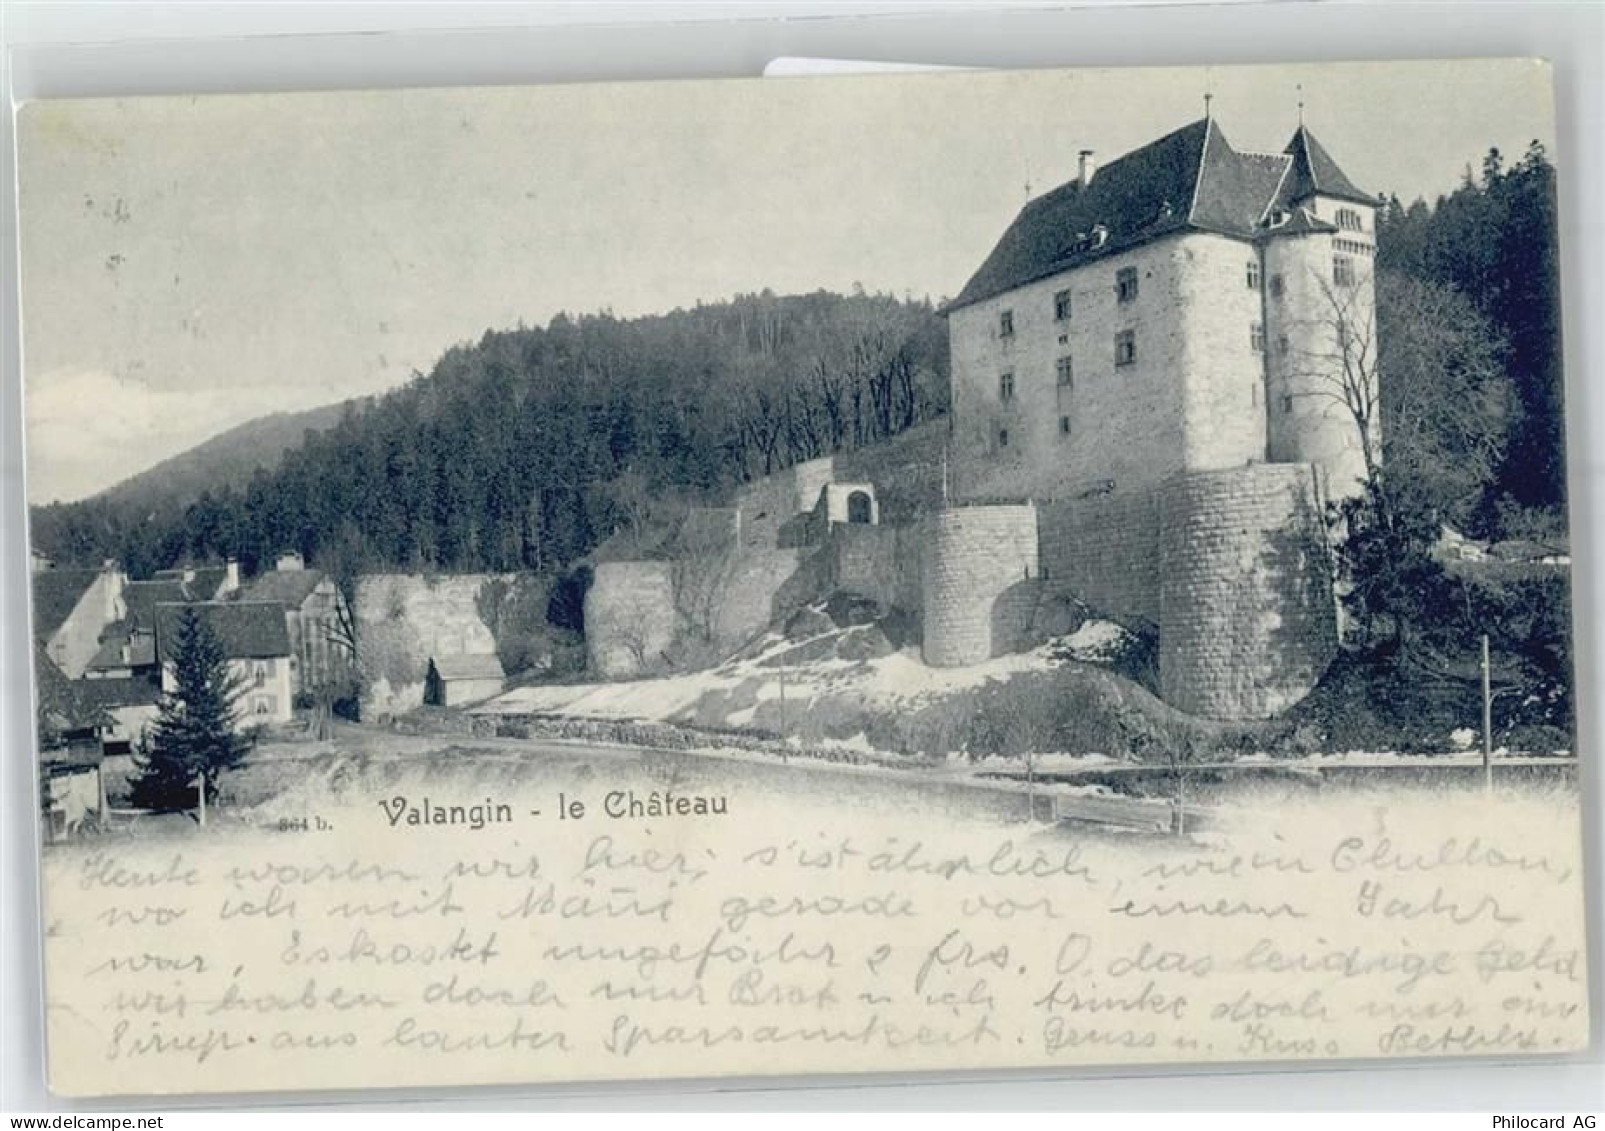 864 b. Valangin - le Château
Heute waren wir hier, s'ist ähnlich, wie in Chillon,
wo ich mit Mäñi gerade vor einem Jahr
war. Es kostet ungefähr 2 frs. O, das leidige Geld
wir haben doch nur Brot u ich trinke doch nur ein
Sirup. aus lauter Sparsamkeit. Gruss u. Kuss
Philocard AG